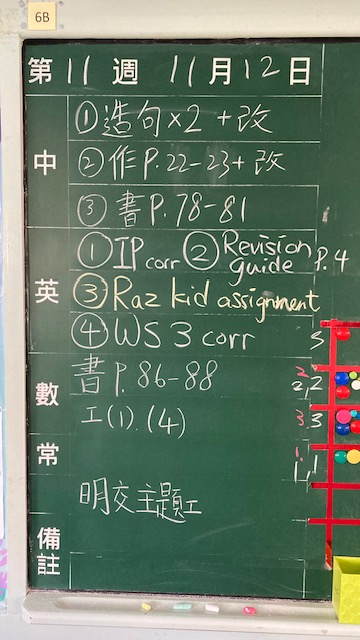 6B
第 11 週 11 月 12 日
中
① 造句×2 +改
② 作 P.22-23+改
③ 書 P.78-81
英
① IP corr ② Revision guide P.4
③ Raz kid assignment
④ WS 3 corr
數
書 P.86-88
工(1).(4)
常
明交主題工
備註
3
2 2,2
3.3
1. 1,1